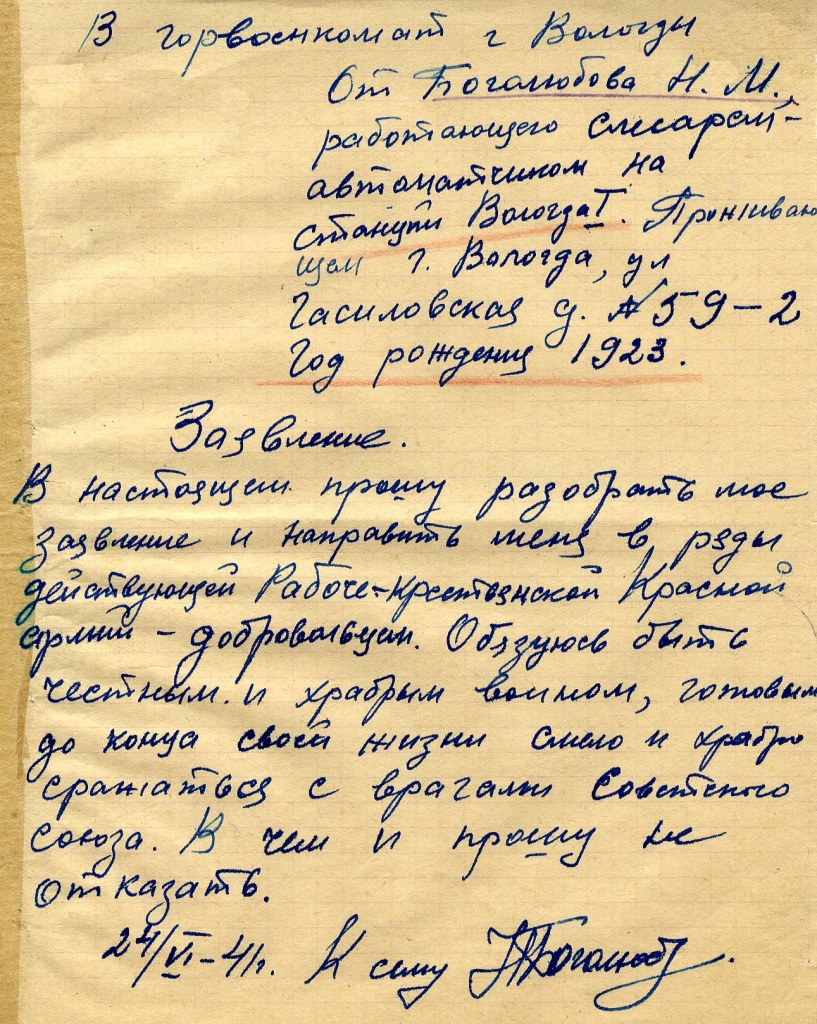 В горвоенкомат г Вологды
От Боголюбова Н. М.,
работающего слесарем-
автоматчиком на
станции Вологда I. Проживаю-
щем г. Вологда, ул
Гасиловская д. № 59-2
Год рождения 1923.
Заявление.
В настоящем прошу разобрать мое
заявление и направить меня в ряды
действующей Рабоче-Крестьянской Красной
армии - добровольцем. Обязуюсь быть
честным и храбрым воином, готовым
до конца своей жизни смело и храбро
сражаться с врагами Советского
союза. В чем и прошу не
отказать.
24/VI-41г. К сему НБоголюб